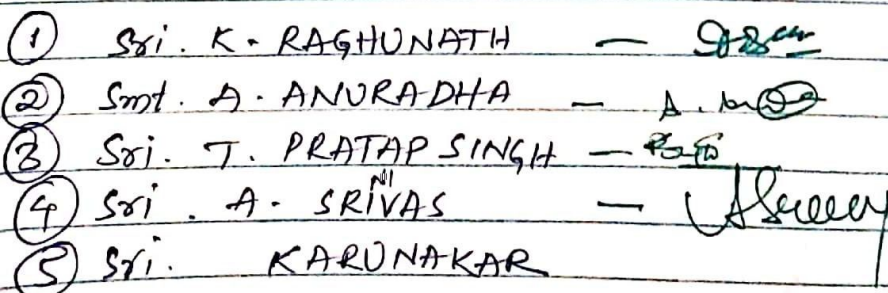 ① Sri. K. RAGHUNATH —
② Smt. A. ANURADHA — A.
③ Sri. T. PRATAP SINGH —
④ Sri. A. SRINIVAS —
⑤ Sri. KARUNAKAR